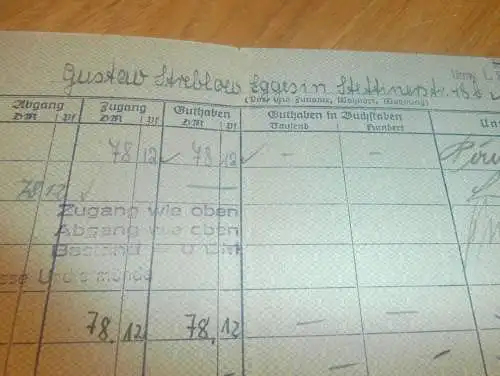 Gustav Streblow Eggesin Stettinerstr.
(Vor= und Zuname, Wohnort, Wohnung)
Abgang Zugang Guthaben Guthaben in Buchstaben
DM Pf DM Pf DM Pf Tausend Hundert
78 12 78 12 — —
78 12 —
Zugang wie oben
Abgang wie oben
Bestand = 0 DM
78. 12 78. 12 — —